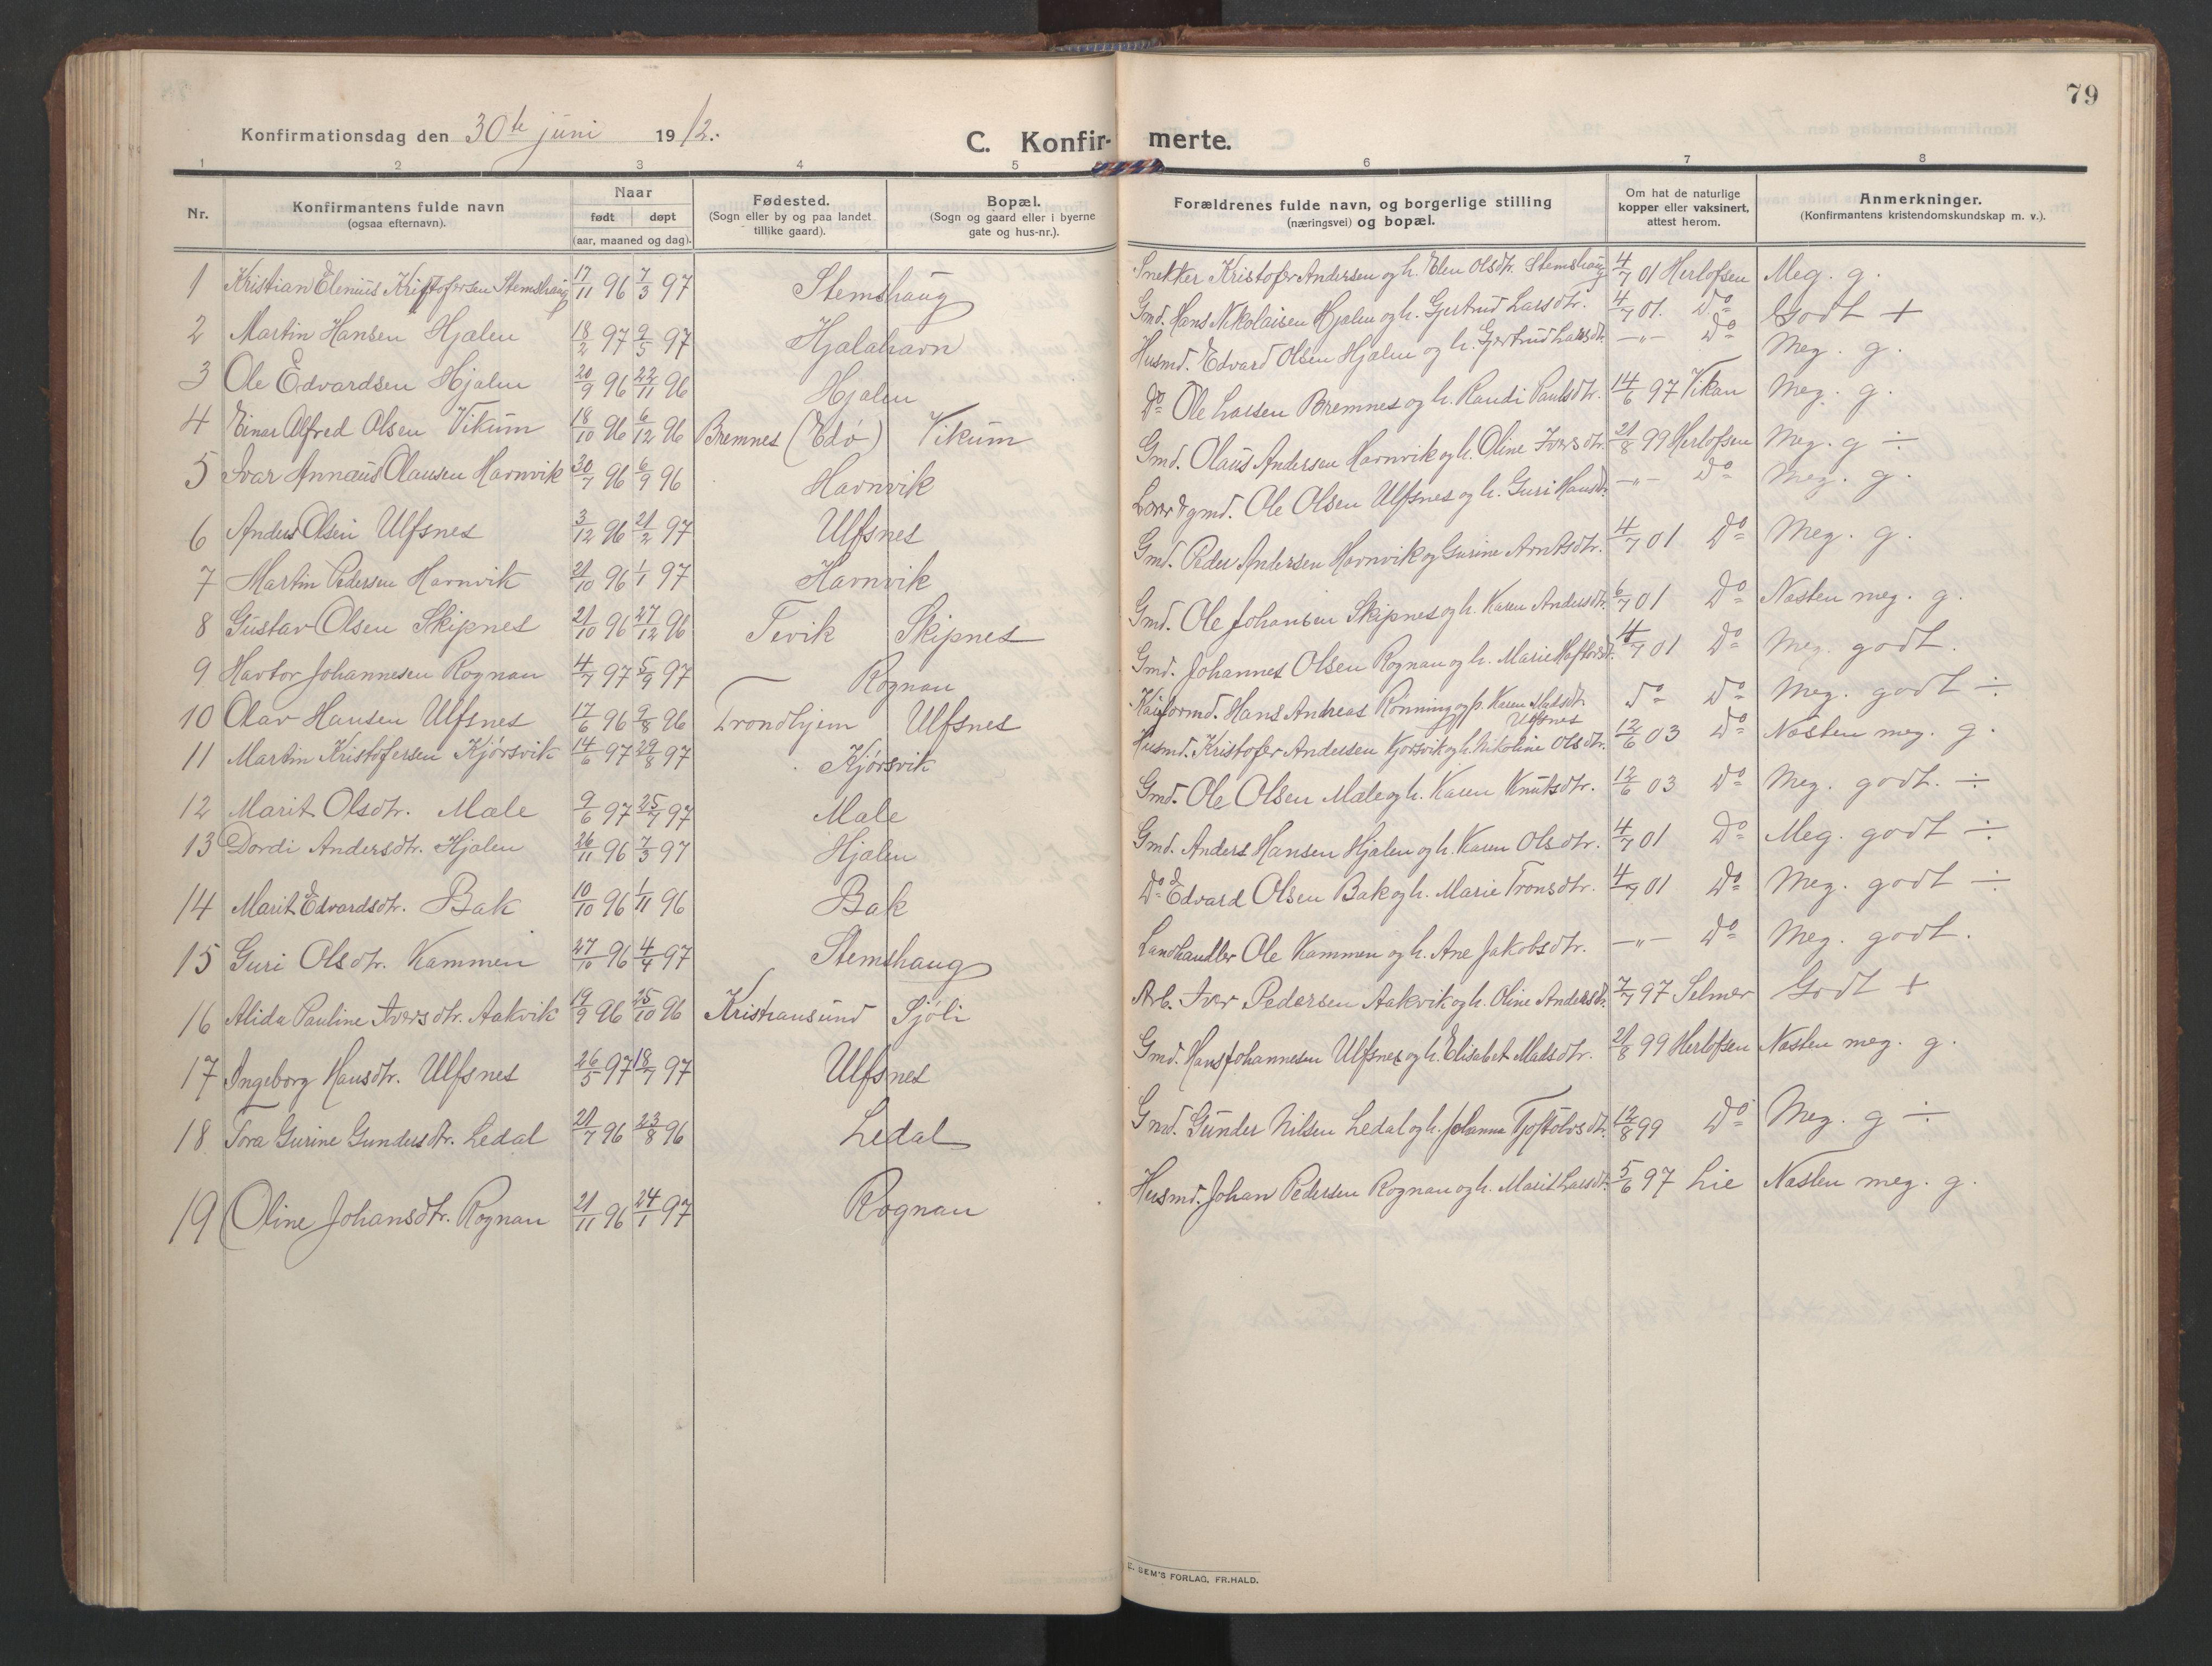 79
Konfirmationsdag den 30te juni 1912.
C. Konfir- merte.
1 2 3 4 5 6 7 8
Nr.
Konfirmantens fulde navn
(ogsaa efternavn).
Naar
født døpt
(aar, maaned og dag).
Fødested.
(Sogn eller by og paa landet
tillike gaard).
Bopæl.
(Sogn og gaard eller i byerne
gate og hus-nr.).
Forældrenes fulde navn, og borgerlige stilling
(næringsvei) og bopæl.
Om hat de naturlige
kopper eller vaksinert,
attest herom.
Anmerkninger.
(Konfirmantens kristendomskundskap m. v.).
1 Kristian Elenius Kristofersen Stemshaug 17/11 96 7/3 97 Stemshaug Snekker Kristofer Andersen og h. Elen Olsdtr. Stemshaug 4/7 01 Herlofsen Meg. g.
2 Martin Hansen Hjalen 18/2 97 9/5 97 Hjalahavn Gmd. Hans Nikolaisen Hjalen og h. Gjertrud Larsdtr. 4/7 01. Do Godt +
3 Ole Edvardsen Hjalen 20/9 96 22/11 96 Hjalen Husmd. Edvard Olsen Hjalen og h. Gjertrud Larsdtr. —"— Do Meg. g.
4 Einar Alfred Olsen Vikum 18/10 96 6/12 96 Bremnes (Edø) Vikum Do Ole Larsen Bremnes og h. Randi Paulsdtr. 14/6 97 Vikan Meg. g.
5 Ivar Annaus Olausen Havnvik 30/7 96 6/9 96 Havnvik Gmd. Olaus Andersen Havnvik og h. Oline Iversdtr. 21/8 99 Herlofsen Meg. g ÷
6 Anders Olsen Ulfsnes 3/12 96 21/2 97 Ulfsnes gmd. Ole Olsen Ulfsnes og h. Guri Hansdtr. —"— Do Meg. g.
7 Martin Pedersen Havnvik 21/10 96 1/1 97 Havnvik Gmd. Peder Andersen Havnvik og Gurine Arntsdtr. 4/7 01 Do Meg. g.
8 Gustav Olsen Skipnes 21/10 96 27/12 96 Tevik Skipnes Gmd. Ole Johansen Skipnes og h. Karen Andersdtr. 6/7 01 Do Næsten meg. g.
9 Havtor Johannesen Rognan 4/7 97 5/9 97 Rognan Gmd. Johannes Olsen Rognan og h. Marie Haftorsdt. 4/7 01 Do Meg. godt.
10 Olav Hansen Ulfsnes 17/6 96 9/8 96 Trondhjem Ulfsnes Hans Andreas Rønning og p. Karen Madsdtr. Ulfsnes Do Do Meg. godt ÷
11 Martin Kristofersen Kjørsvik 14/6 97 29/8 97 Kjørsvik Husmd. Kristofer Andersen Kjørsvik og h. Nikoline Olsdtr. 12/6 03 Do Næsten meg. g.
12 Marit Olsdtr. Male 9/6 97 25/7 97 Male Gmd. Ole Olsen Male og h. Karen Knutsdtr. 12/6 03 Do Meg. godt. ÷
13 Dordi Andersdtr. Hjalen 26/11 96 7/3 97 Hjalen Gmd. Anders Hansen Hjalen og h. Karen Olsdtr. 4/7 01 Do Meg. godt ÷
14 Marit Edvardsdtr. Bak 10/10 96 1/11 96 Bak Do Edvard Olsen Bak og h. Marie Tronsdtr. 4/7 01 Do Meg. godt ÷
15 Guri Olsdtr. Kammen 27/10 96 4/4 97 Stemshaug Landhandler Ole Kammen og h. Ane Jakobsdtr. —"— Do Meg. godt.
16 Alida Pauline Iversdtr. Aakvik 19/9 96 25/10 96 Kristiansund Sjøli Arb. Iver Pedersen Aakvik og h. Oline Andersdtr. 7/7 97 Selmer Godt +
17 Ingeborg Hansdtr. Ulfsnes 26/5 97 18/7 97 Ulfsnes Gmd. Hans Johannesen Ulfsnes og h. Elisabet Madsdtr. 21/8 99 Herlofsen Næsten meg. g.
18 Tora Gurine Gundersdtr. Ledal 21/7 96 23/8 96 Ledal Gmd. Gunder Nilsen Ledal og h. Johanna Tjøstolvsdtr. 12/8 99 Do Meg. g ÷
19 Oline Johansdtr. Rognan 21/11 96 24/1 97 Rognan Husmd. Johan Pedersen Rognan og h. Marit Larsdtr. 5/6 97 Lie Næsten meg. g.
SEM'S FORLAG, FR.HALD.